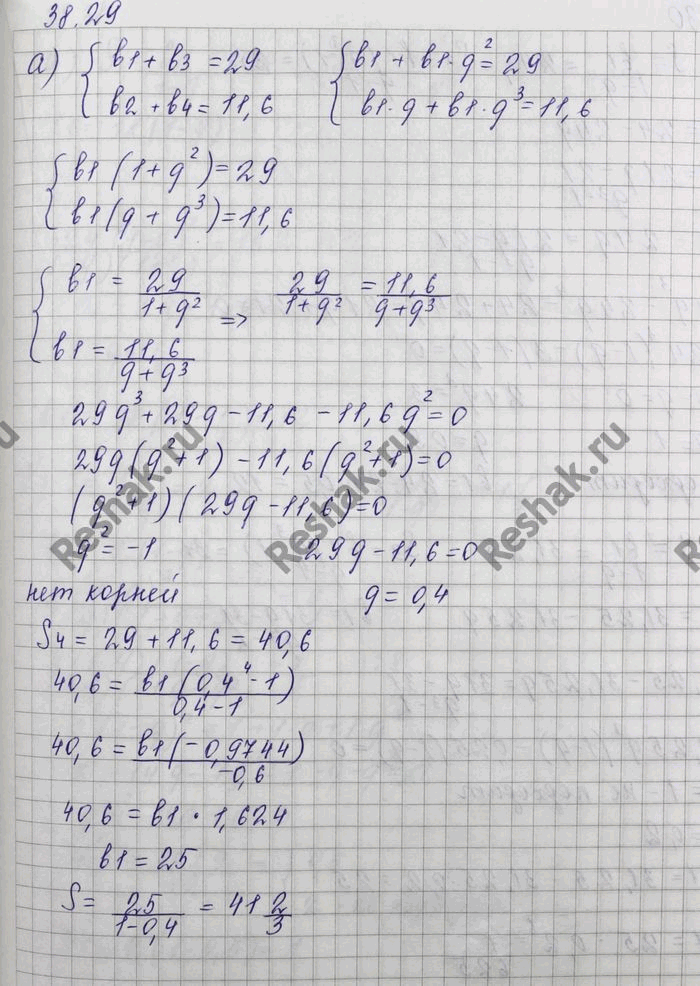 38.29
а) { b1 + b3 = 29    { b1 + b1·q² = 29
b2 + b4 = 11,6    b1·q + b1·q³ = 11,6
{ b1 (1 + q²) = 29
b1 (q + q³) = 11,6
{ b1 = 29/(1 + q²) => 29/(1 + q²) = 11,6/(q + q³)
b1 = 11,6/(q + q³)
29q³ + 29q - 11,6 - 11,6q² = 0
29q (q² + 1) - 11,6 (q² + 1) = 0
(q² + 1) (29q - 11,6) = 0
q² = -1    29q - 11,6 = 0
нет корней    q = 0,4
S4 = 29 + 11,6 = 40,6
40,6 = b1 (0,4⁴ - 1)/(0,4 - 1)
40,6 = b1 (-0,9744)/(-0,6)
40,6 = b1 · 1,624
b1 = 25
S = 25/(1 - 0,4) = 41 2/3
Reshak.ru
Reshak.ru
Reshak.ru